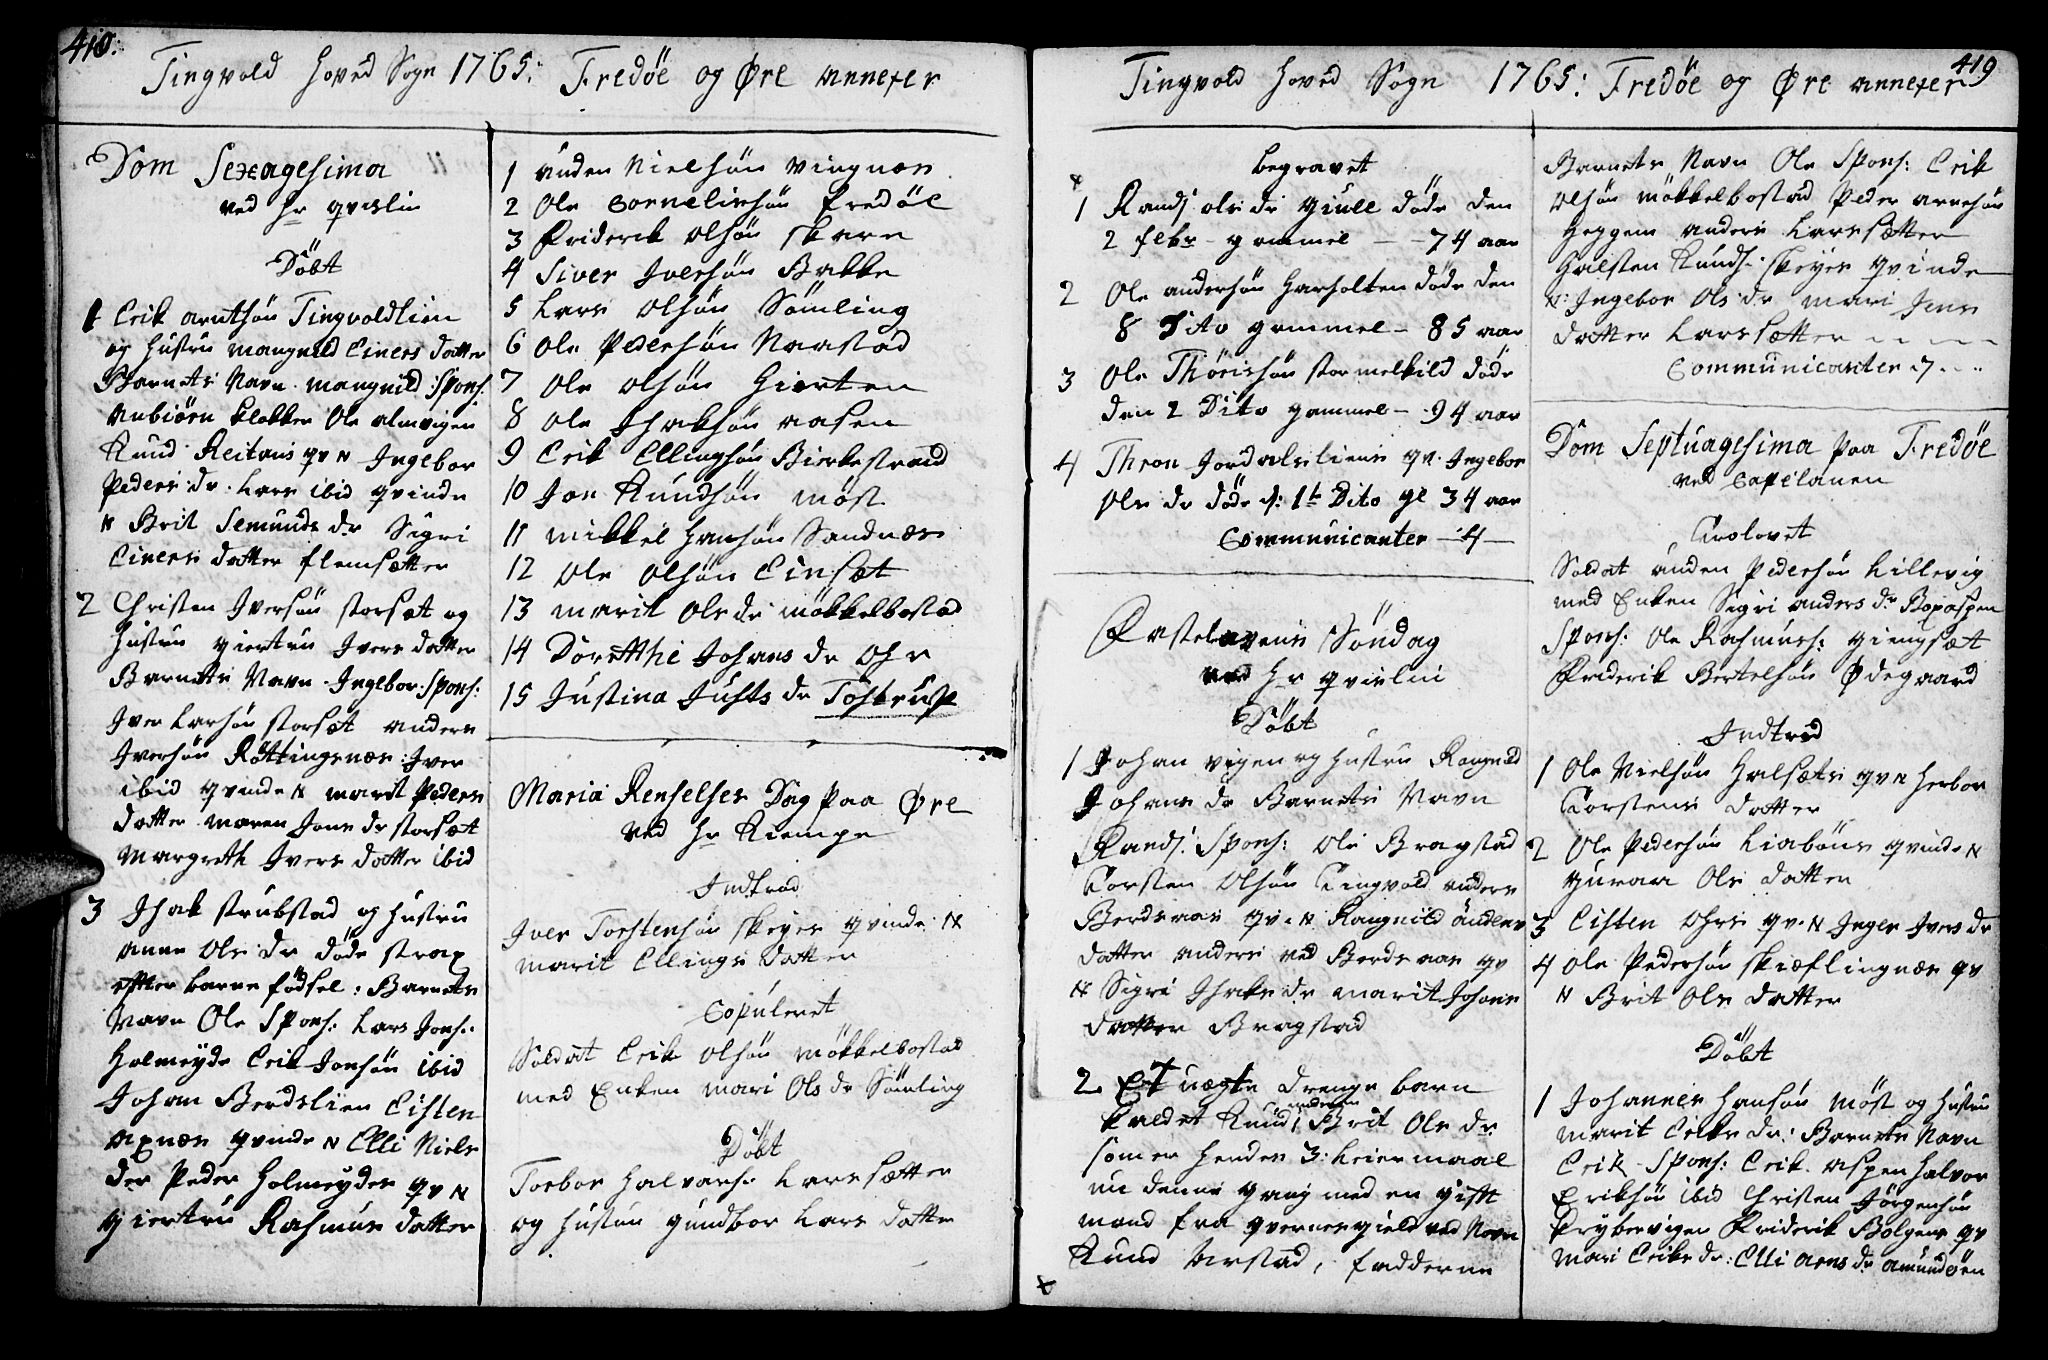 410.
Tingvold Hoved Sogn 1765: Fredöe og Øre annexer
Dom Sexagesima
ved Hr qvislin
Döbt
1 Erik arntsøn Tingvoldlien
og Hustru mangnild Einers datter
Barnets Navn mangnild Spons:
Anbiörn klokker Ole almvigen
Knud Reitens qv N Ingebor
Peders dr. Lars ibid qvinde
N Brit Semunds dr Sigri
Einers datter flemsætter
2 Christen Iversøn storsæt og
Hustru giertru Ivers datter
Barnets Navn Ingebor Spons:
Iver Larsøn storsæt anders
Iversøn Röttingsnæs Iver
ibid qvinde N marit Peders
datter maren Jons dr storsæt
Margreth Ivers datter ibid
3 Isak strubstad og Hustru
anne Ols dr döde strax
efter barns födsel: Barnets
Navn Ole Spons: Lars Jons:
Holmeyde Erik Jonsøn ibid
Johan Berdslien Eisten
axnæs qvinde N Elli Niels
der Peder Holmeydes qv N
giertru Rasmus datter
1 anders Nielsøn Vingnæs
2 Ole Cornelissøn fredöe
3 Friderik Olsøn skare
4 Siver Iversøn Bakke
5 Lars Olsøn Sömling
6 Ole Pedersøn Naastad
7 Ole Olsøn Hiorten
8 Ole Isaksøn aasen
9 Erik Ellingsøn Bierkestrand
10 Jon Knudsøn möst
11 mikkel Hansøn Sandnæs
12 Ole Olsøn Einsæt
13 marit Ols dr mökkelbostad
14 Dorethe Johans dr Ohr
15 Justina Justs dr Tostrup
Maria Renselses Dag paa Øre
ved Hr Kiempe
Indtrad
Iver Torstensøn skeyes qvinde N
marit Ellings datter
Copuleret
Soldat Erik Olsøn möckelbostad
med Enken mari Ols dr Sömling
Döbt
Torbor Halvors: Larssætter
og Hustru gundbor Lars datter
419
Tingvold Hoved Sogn 1765: Fredöe og Øre annexer
begravet
1 Randj ols dr giull döde den
2 febr gammel - 74 aar
2 Ole andersøn Harsolten döde den
8 Dito gammel - 85 aar
3 Ole Thörissøn stormelkild döde
den 2 Dito gammel - 94 aar
4 Thron Jordalsliens qv. Ingebor
Ols dr döde d: 1te Dito gl 34 aar
Communicanter - 4 -
Fastelavens Söndag
ved Hr qvislin
Döbt
1 Johan vigen og Hustru Rangnild
Johans dr Barnets Navn
Randj. Spons: Ole Bragstad
Torsten Olsøn Tingvold anders
Berdsaas qv. N Rangnild anders
datter anders ved Berdsaas qv
N Sigri Isaks dr marit Johans
datter Bragstad
2. Et uægte drenge barn
kaldet Knud, moderen Brit Ols dr
som er hendes 3: Leiermaal
nu denne gang med en gift
mand fra qvernesgield ved Navn
Knud Arstad, fadderne
Barnets Navn Ole Spons: Erik
Olsøn möckelbostad Peder arnesøn
Heggem anders Larssætter
Halsten Knuds: skeyes qvinde
N: Ingebor Ols dr mari Jens
datter Larssætter
Communicanter 7
Dom Septuagesima paa Fredöe
ved Capelanen
Trolovet
Soldat anders Pedersøn Lillevig
med Enken Sigri anders dr Boxaspen
Spons: Ole Rasmuss: giengsæt
Friderik Bertelsøn Ødegaard
Indtrad
1 Ole Nielsøn Halsets qv N Herbor
Torstens datter
2 Ole Pedersøn Liaböens qvinde N
guraa Ols datter
3 Eisten Ohrs qv. N Inger Ivers dr
4 Ole Pedersøn skieflingnæs qv
N Brit Ols datter
Döbt
1 Johannes Hansøn Möst og Hustru
marit Eriks dr: Barnets Navn
Erik. Spons: Erik aspen Halvor
Eriksøn ibid Christen Jörgensøn
Frydsvigen Friderik Bolgens qv
Mari Eriks dr: Elli arns dr amundöen